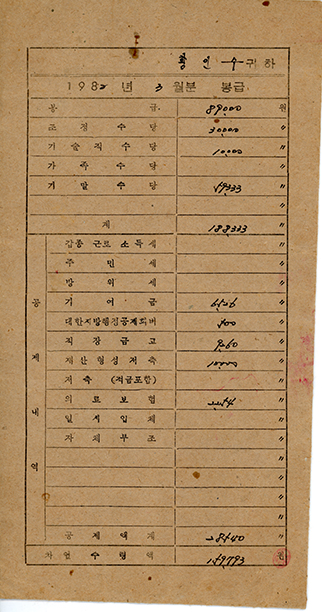 황 인 수 귀하
1982 년 3 월분 봉급
봉 급 89,000 원
조 정 수 당 30,000 〃
기 술 직 수 당 10,000 〃
가 족 수 당 〃
기 말 수 당 59,333 〃
〃
계 188,333 〃
공 제 내 역
갑종 근로 소득 세 〃
주 민 세 〃
방 위 세 〃
기 여 금 〃
대한지방행정공제회비 〃
직 장 금 고 〃
재 산 형 성 저 축 10,000 〃
저 축 (적금포함) 〃
의 료 보 험 〃
일 시 입 체 〃
자 체 부 조 〃
〃
〃
〃
〃
공 제 액 계 〃
차 인 수 령 액 159,793 원